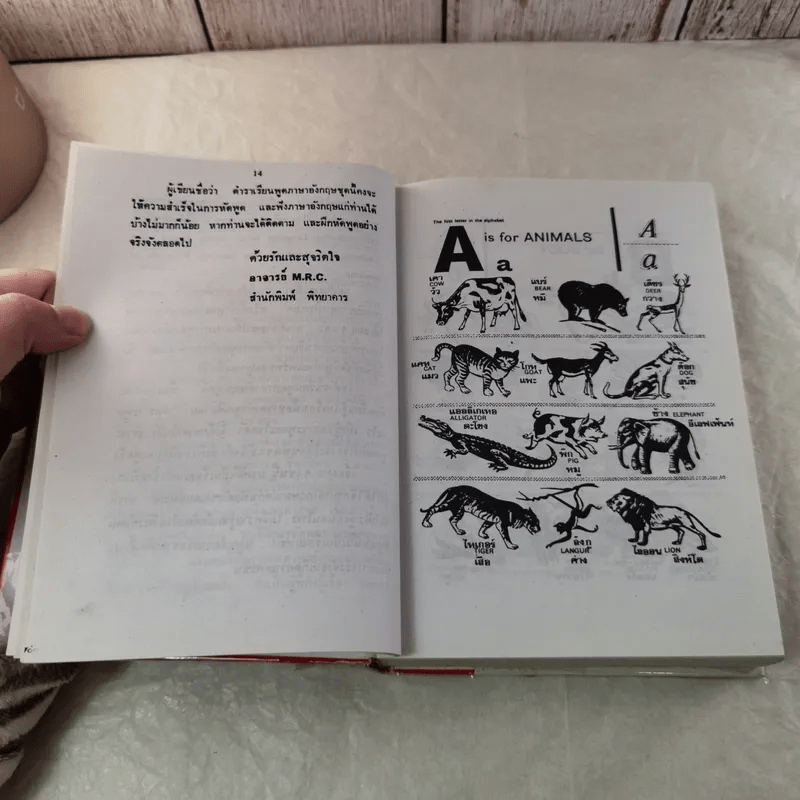 14
ผู้เขียนเชื่อว่า ตำราเรียนพูดภาษาอังกฤษชุดนี้คงจะ
ให้ความสำเร็จในการหัดพูด และฟังภาษาอังกฤษแก่ท่านได้
บ้างไม่มากก็น้อย หากท่านจะได้ติดตาม และฝึกหัดพูดอย่าง
จริงจังตลอดไป
ด้วยรักและสุจริตใจ
อาจารย์ M.R.C.
สำนักพิมพ์ พิทยาคาร
The first letter in the alphabet
A is for ANIMALS
a
A
a
เคา
COW
วัว
แบร์
BEAR
หมี
เดียร
DEER
กวาง
แคท
CAT
แมว
โกท
GOAT
แพะ
ด็อก
DOG
สุนัข
แอลลิเกเทอ
ALLIGATOR
ตะโขง
พิก
PIG
หมู
ช้าง ELEPHANT
อีเลฟเฟ่นท์
ไทเกอร์
TIGER
เสือ
ลังกู
LANGUR
ค่าง
ไลออน LION
สิงห์โต